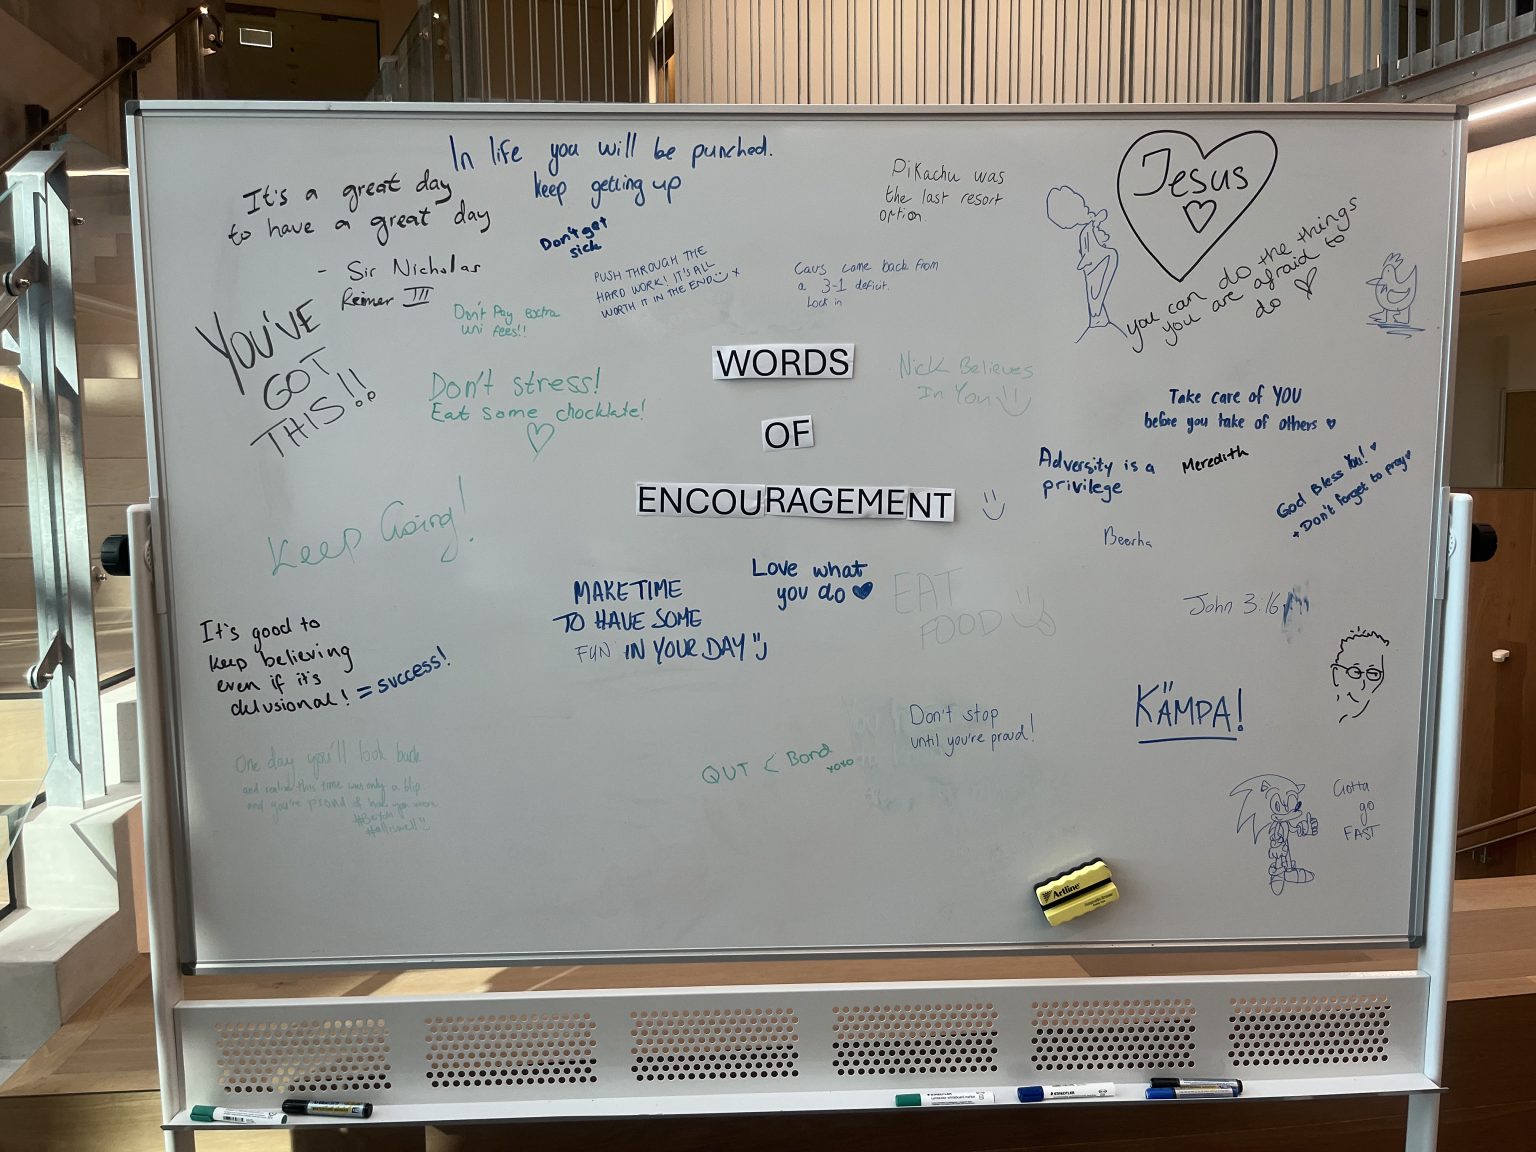 In life you will be punched.
keep getting up
It's a great day
to have a great day
- Sir Nicholas
Reimer III
Don't get
sick
PUSH THROUGH THE
HARD WORK! IT'S ALL
WORTH IT IN THE END x
Pikachu was
the last resort
option.
Cavs come back from
a 3-1 deficit.
Lock in
Jesus
you can do the things
you are afraid to
do
Don't Pay extra
uni fees!!
YOU'VE
GOT
THIS!!
Don't stress!
Eat some chocklate!
WORDS
OF
ENCOURAGEMENT
Nick Believes
In You
Take care of YOU
before you take of others
Adversity is a
privilege
Meredith
God Bless You!
+ Don't forget to pray
Beerha
Keep Going!
MAKE TIME
TO HAVE SOME
FUN IN YOUR DAY
Love what
you do
EAT
FOOD
John 3:16
It's good to
keep believing
even if it's
delusional! = success!
KÄMPA!
Don't stop
until you're proud!
QUT < Bond
xoxo
One day you'll look back
and realise this time was only a blip
and you're proud of how you were
#alliswell
Gotta
go
FAST
Artline